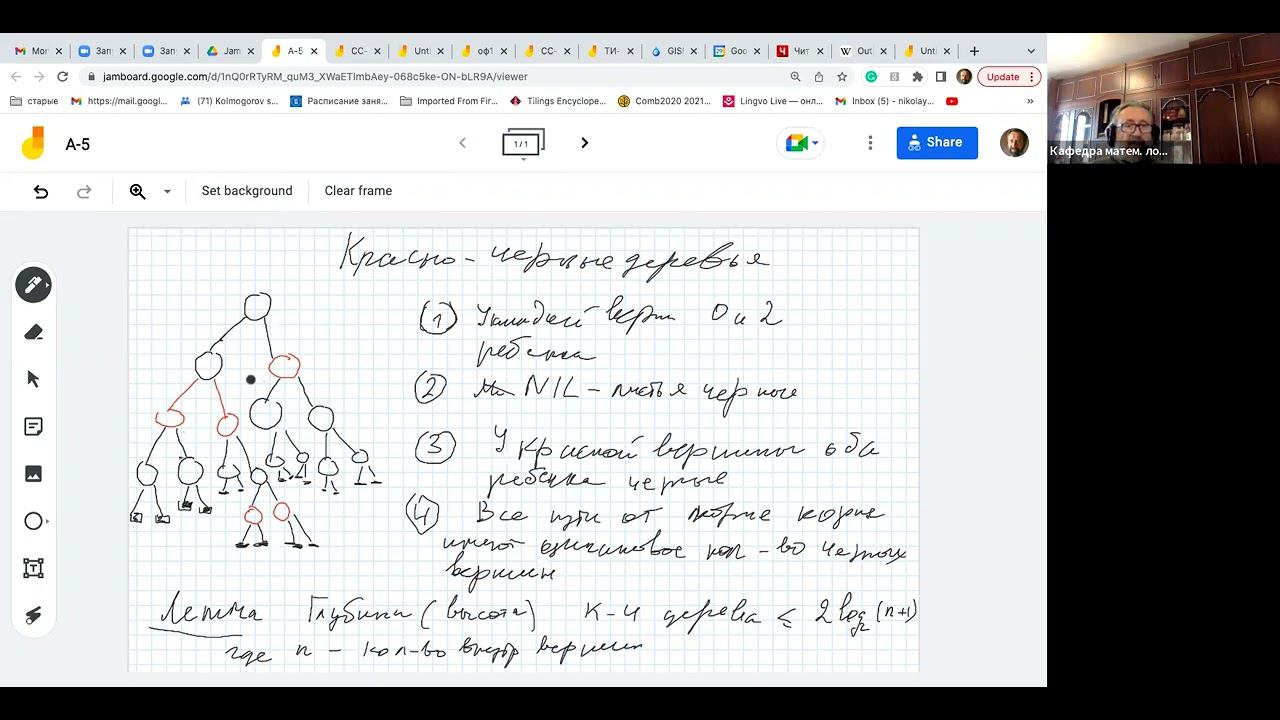 Mor
Запу
Запу
Jam
А-5
CC-
Unti
оф1
CC-
ТИ-
GISI
Goo
Чит
Out
Unti
jamboard.google.com/d/1nQ0rRTyRM_quM3_XWaETlmbAey-068c5ke-ON-bLR9A/viewer
Update
старые
https://mail.googl...
(71) Kolmogorov s...
Расписание заня...
Imported From Fir...
Tilings Encyclope...
Comb2020 2021...
Lingvo Live — онл...
Inbox (5) - nikolay...
»
А-5
1/1
Share
Кафедра матем. ло...
Set background
Clear frame
Красно-черные деревья
1 У каждой верш 0 и 2
ребенка
2 NIL - листья черные
3 У красной вершины оба
ребенка черные
4 Все пути от корня
имеют одинаковое кол-во черных
вершин
Лемма Глубина (высота) К-Ч дерева ≤ 2 log₂(n+1)
где n - кол-во внутр вершин